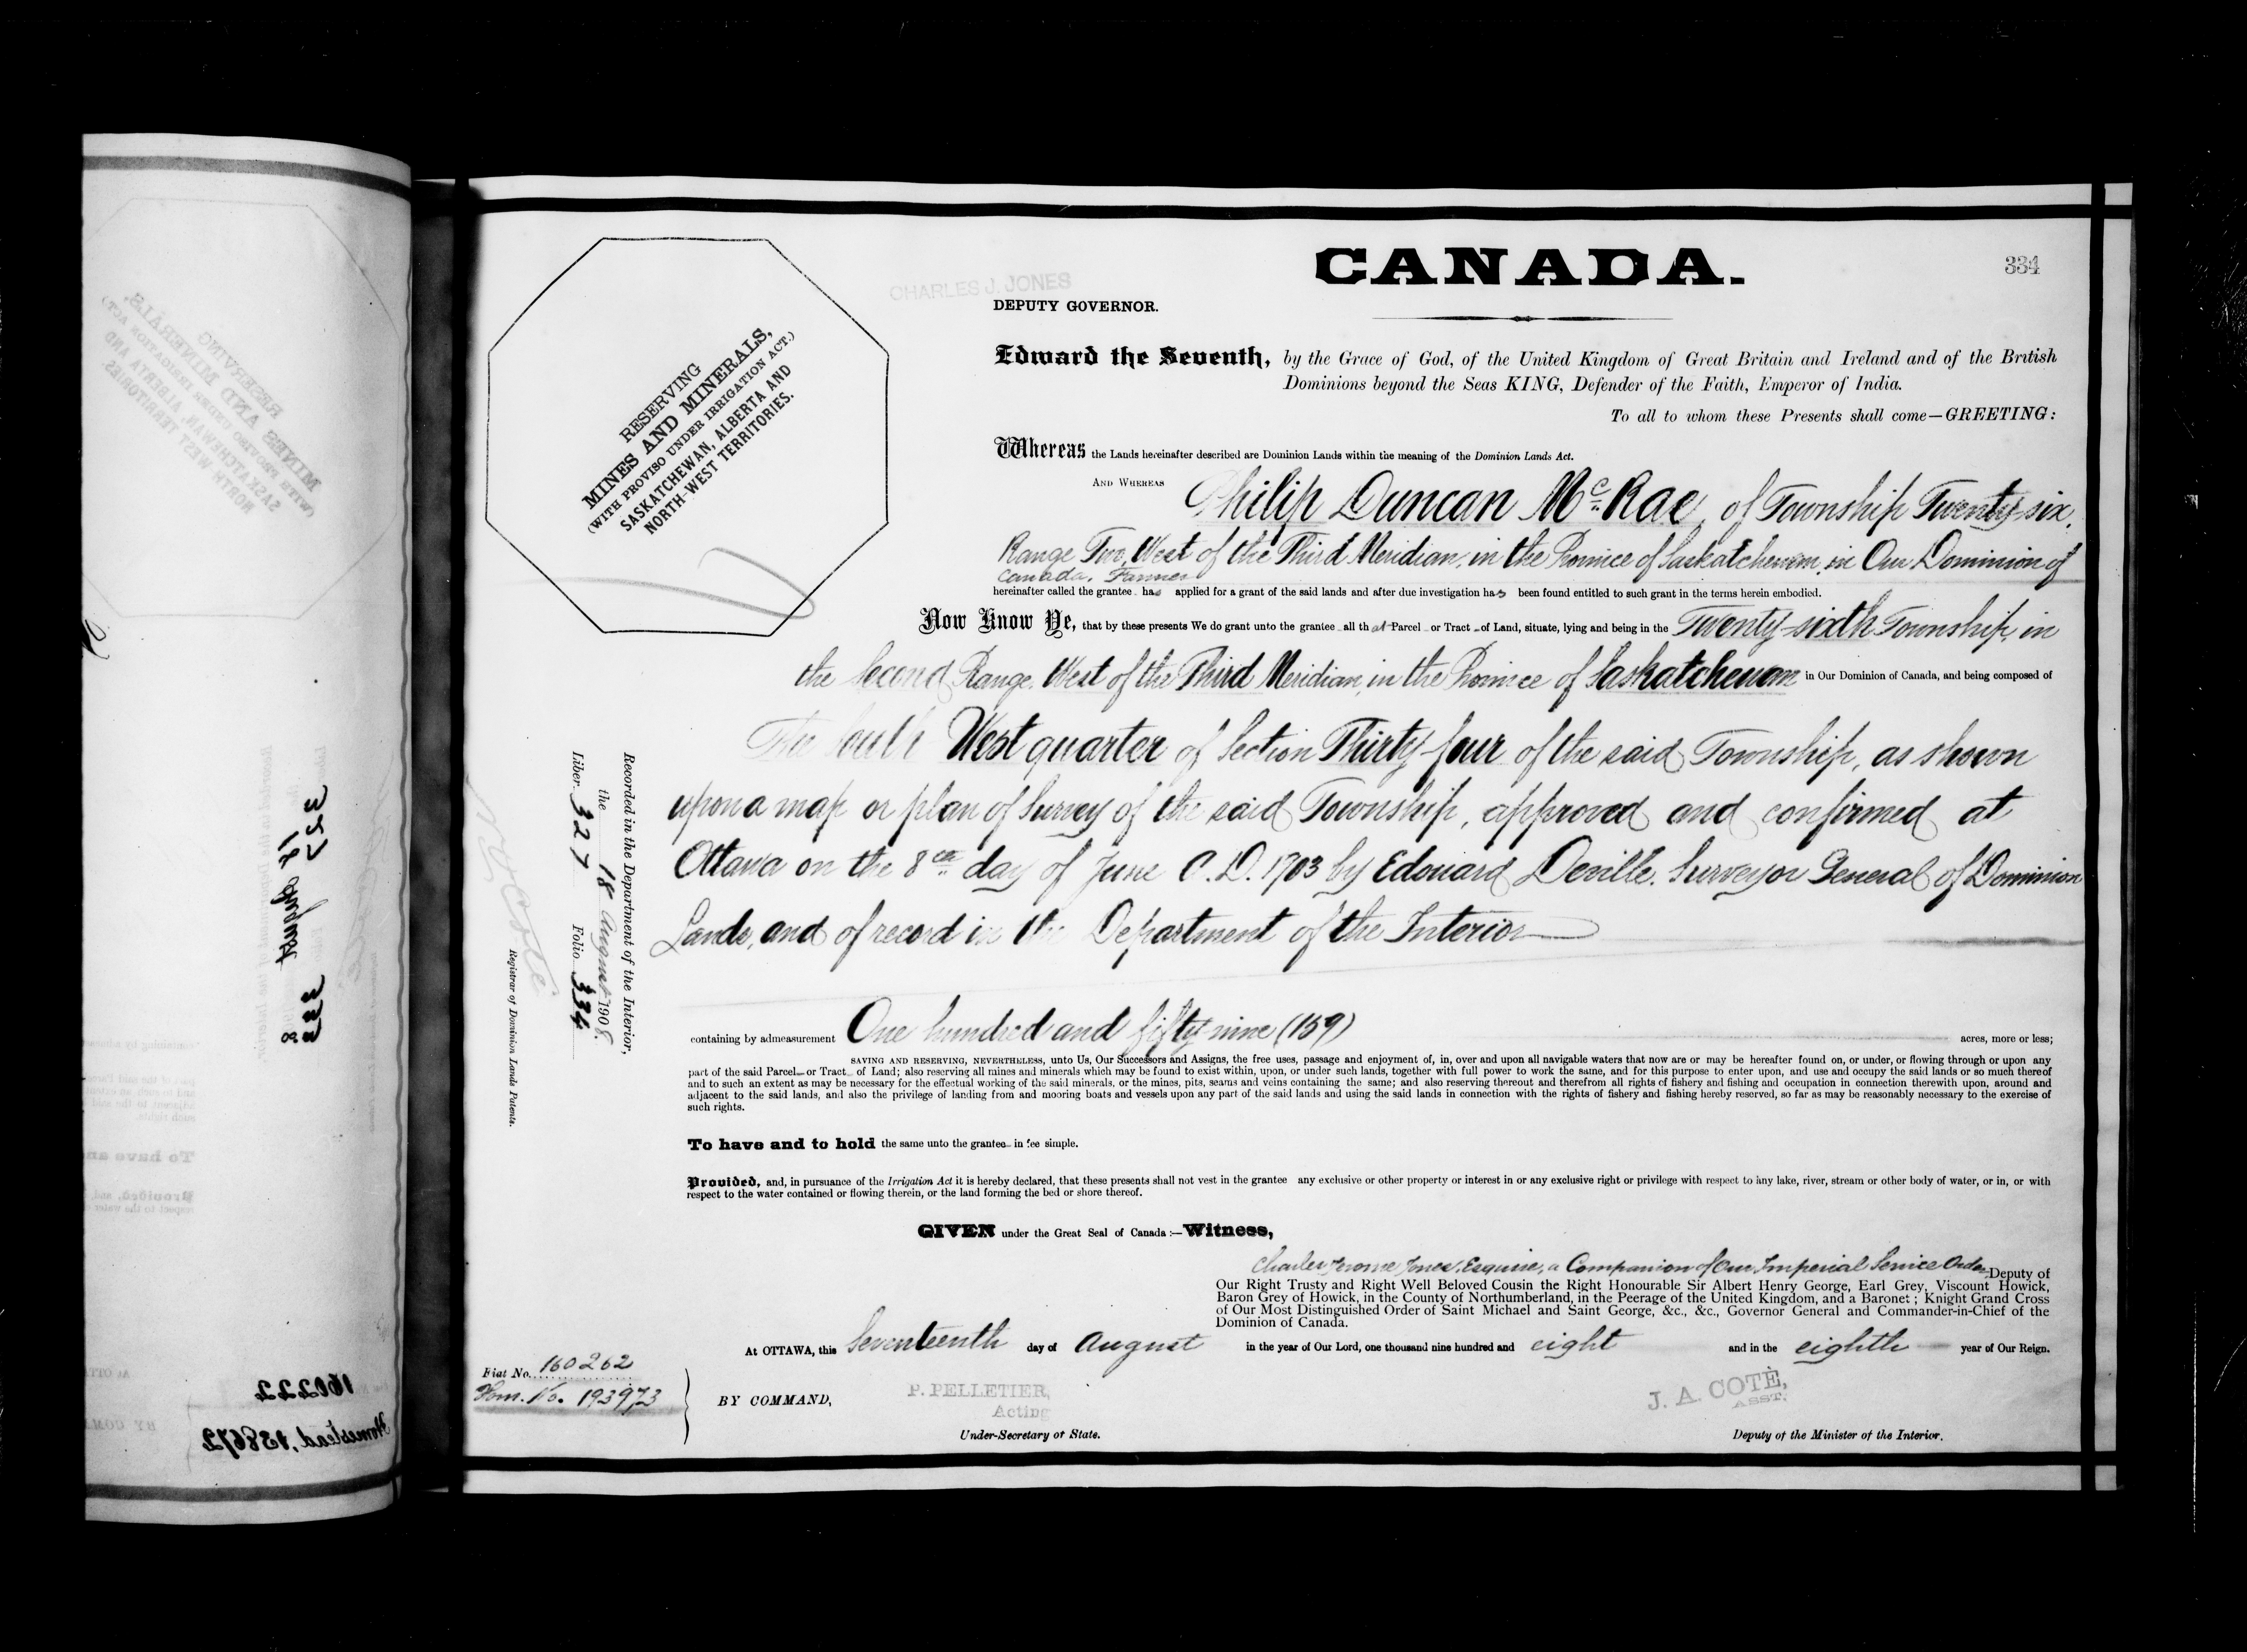 CANADA.
334
CHARLES J. JONES
DEPUTY GOVERNOR.
RESERVING
MINES AND MINERALS,
(WITH PROVISO UNDER IRRIGATION ACT.)
SASKATCHEWAN, ALBERTA AND
NORTH-WEST TERRITORIES.
Edward the Seventh, by the Grace of God, of the United Kingdom of Great Britain and Ireland and of the British
Dominions beyond the Seas KING, Defender of the Faith, Emperor of India.
To all to whom these Presents shall come—GREETING:
Whereas the Lands hereinafter described are Dominion Lands within the meaning of the Dominion Lands Act.
AND WHEREAS Philip Duncan McRae, of Township Twenty-six,
Range Two, West of the Third Meridian, in the Province of Saskatchewan, in Our Dominion of
Canada, Farmer
hereinafter called the grantee has applied for a grant of the said lands and after due investigation has been found entitled to such grant in the terms herein embodied.
Now Know Ye, that by these presents We do grant unto the grantee all that Parcel or Tract of Land, situate, lying and being in the Twenty-sixth Township, in
the Second Range, West of the Third Meridian, in the Province of Saskatchewan in Our Dominion of Canada, and being composed of
The South West quarter of Section Thirty-four of the said Township, as shown
upon a map or plan of Survey of the said Township, approved and confirmed at
Ottawa on the 8th day of June A.D. 1903 by Edouard Deville, Surveyor General of Dominion
Lands, and of record in the Department of the Interior
containing by admeasurement One hundred and fifty-nine (159) acres, more or less;
SAVING AND RESERVING, NEVERTHELESS, unto Us, Our Successors and Assigns, the free uses, passage and enjoyment of, in, over and upon all navigable waters that now are or may be hereafter found on, or under, or flowing through or upon any
part of the said Parcel or Tract of Land; also reserving all mines and minerals which may be found to exist within, upon, or under such lands, together with full power to work the same, and for this purpose to enter upon, and use and occupy the said lands or so much thereof
and to such an extent as may be necessary for the effectual working of the said minerals, or the mines, pits, seams and veins containing the same; and also reserving thereout and therefrom all rights of fishery and fishing and occupation in connection therewith upon, around and
adjacent to the said lands, and also the privilege of landing from and mooring boats and vessels upon any part of the said lands and using the said lands in connection with the rights of fishery and fishing hereby reserved, so far as may be reasonably necessary to the exercise of
such rights.
To have and to hold the same unto the grantee in fee simple.
Provided, and, in pursuance of the Irrigation Act it is hereby declared, that these presents shall not vest in the grantee any exclusive or other property or interest in or any exclusive right or privilege with respect to any lake, river, stream or other body of water, or in, or with
respect to the water contained or flowing therein, or the land forming the bed or shore thereof.
GIVEN under the Great Seal of Canada:—Witness,
Charles Jerome Jones, Esquire, a Companion of Our Imperial Service Order, Deputy of
Our Right Trusty and Right Well Beloved Cousin the Right Honourable Sir Albert Henry George, Earl Grey, Viscount Howick,
Baron Grey of Howick, in the County of Northumberland, in the Peerage of the United Kingdom, and a Baronet; Knight Grand Cross
of Our Most Distinguished Order of Saint Michael and Saint George, &c., &c., Governor General and Commander-in-Chief of the
Dominion of Canada.
At OTTAWA, this Seventeenth day of August in the year of Our Lord, one thousand nine hundred and eight and in the eighth year of Our Reign.
Fiat No. 160262
Hom. No. 193973
BY COMMAND,
P. PELLETIER,
Acting
Under-Secretary of State.
J. A. COTÉ,
ASST.
Deputy of the Minister of the Interior.
Recorded in the Department of the Interior,
the 18 August 1908.
Liber 327 Folio 334
N. O. Coté
Registrar of Dominion Lands Patents.
327
333
17 August
8
160222
Homestead, 138672